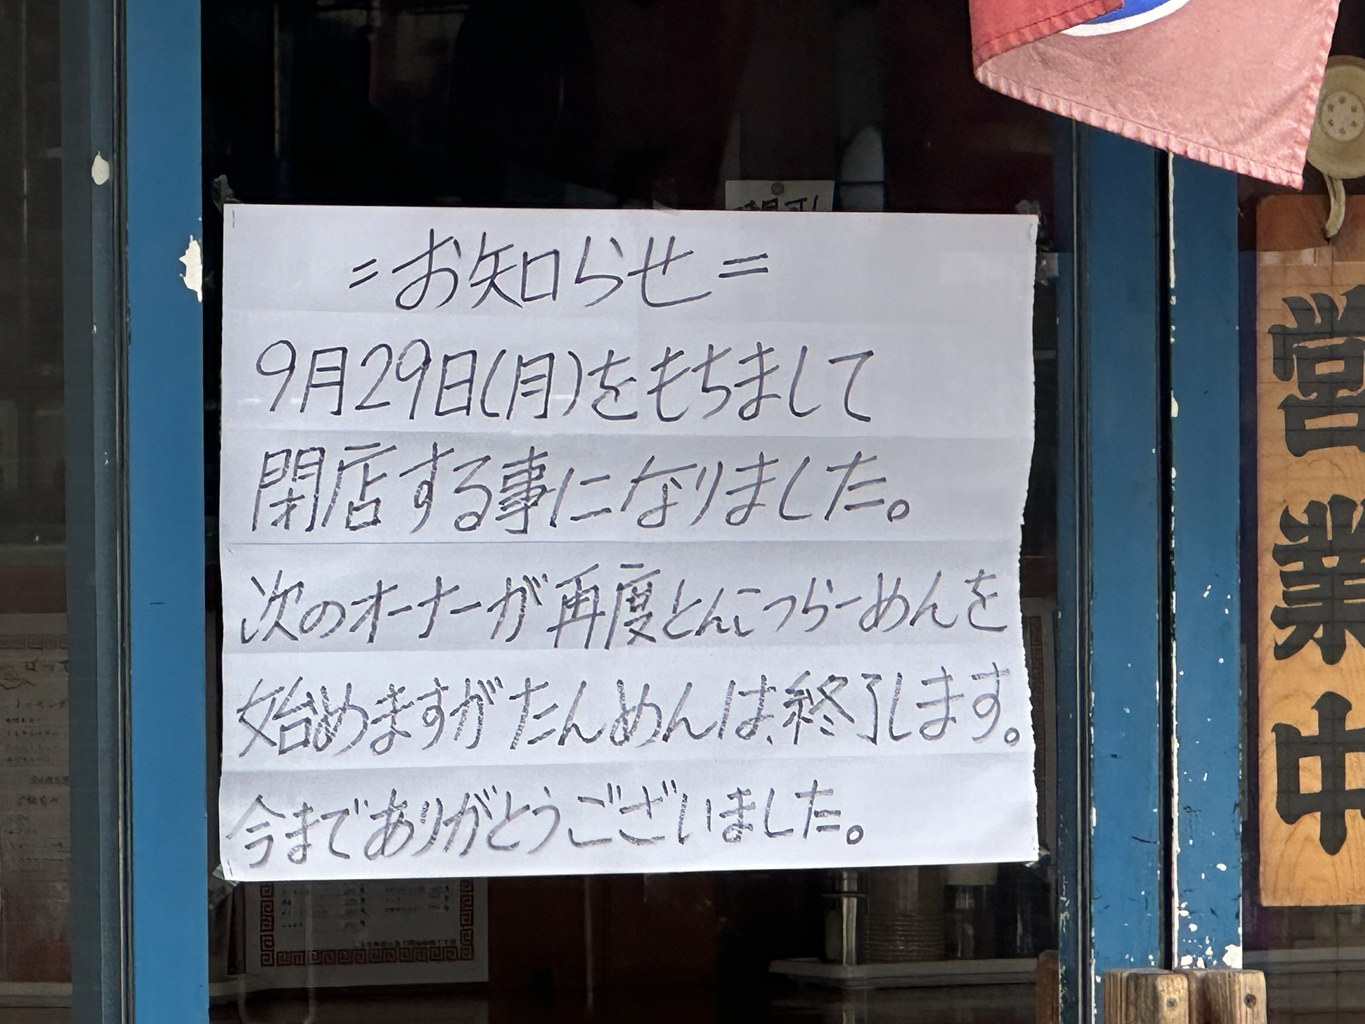 =お知らせ=
9月29日(月)をもちまして
閉店する事になりました。
次のオーナーが再度とんこつらーめんを
始めますがたんめんは、終了します。
今までありがとうございました。
営業中